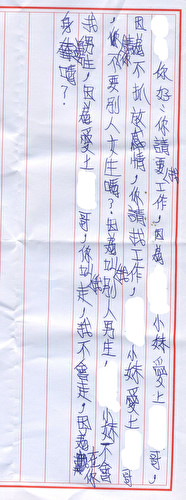 你好，你請要我工作，因為 小妹愛上 哥，
因為不扒放感情，你請我工作， 小妹愛上 哥
，你不要別人女生嗎？因為叫我別人男生， 小妹不會
我男生，因為愛上 哥，你叫我走，我不會走，因為 在你
身 嗎？